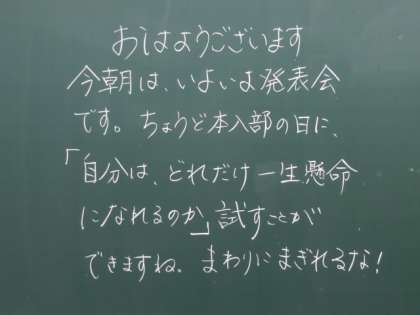 おはようございます
今朝は、いよいよ発表会
です。ちょうど本入部の日に、
「自分は、どれだけ一生懸命
になれるのか」試すことが
できますね。まわりにまぎれるな!